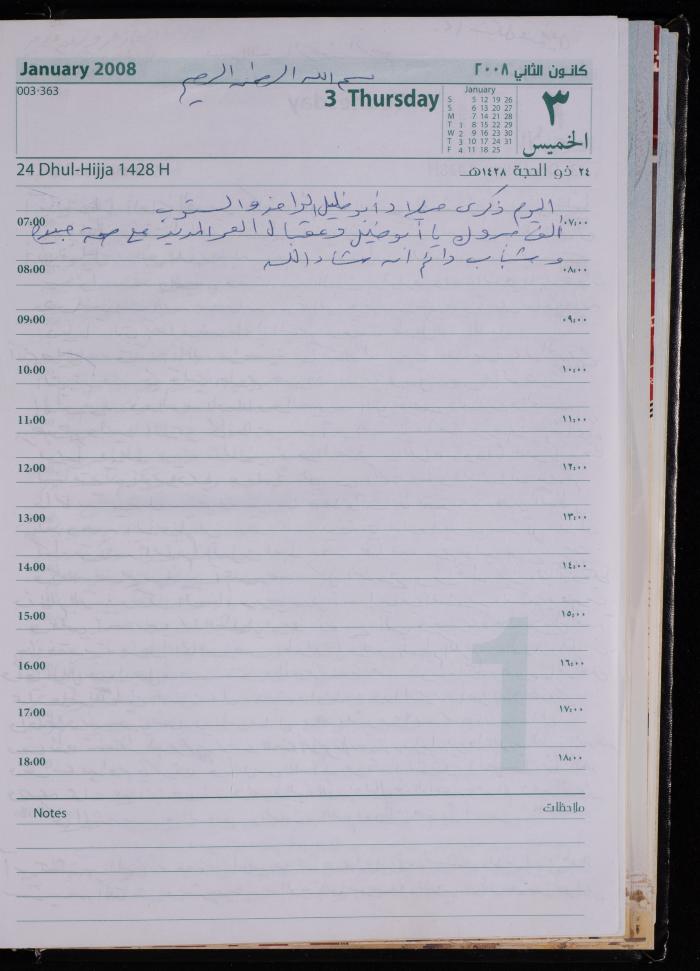 January 2008
كانون الثاني ٢٠٠٨
بسم الله الرحمن الرحيم
003-363
3 Thursday
January
S 5 12 19 26
S 6 13 20 27
M 7 14 21 28
T 1 8 15 22 29
W 2 9 16 23 30
T 3 10 17 24 31
F 4 11 18 25
٣
الخميس
24 Dhul-Hijja 1428 H
٢٤ ذو الحجة ١٤٢٨هـ
اليوم ذكرى ميلاد أبو خليل الواحد والستون
07:00 ٠٧:٠٠
الف مبروك يا أبو خليل وعقبال العمر المديد مع صحة جيدة
وشباب دائم انه شاء الله
08:00 ٠٨:٠٠
09:00 ٠٩:٠٠
10:00 ١٠:٠٠
11:00 ١١:٠٠
12:00 ١٢:٠٠
13:00 ١٣:٠٠
14:00 ١٤:٠٠
15:00 ١٥:٠٠
16:00 ١٦:٠٠
17:00 ١٧:٠٠
18:00 ١٨:٠٠
1
Notes
ملاحظات